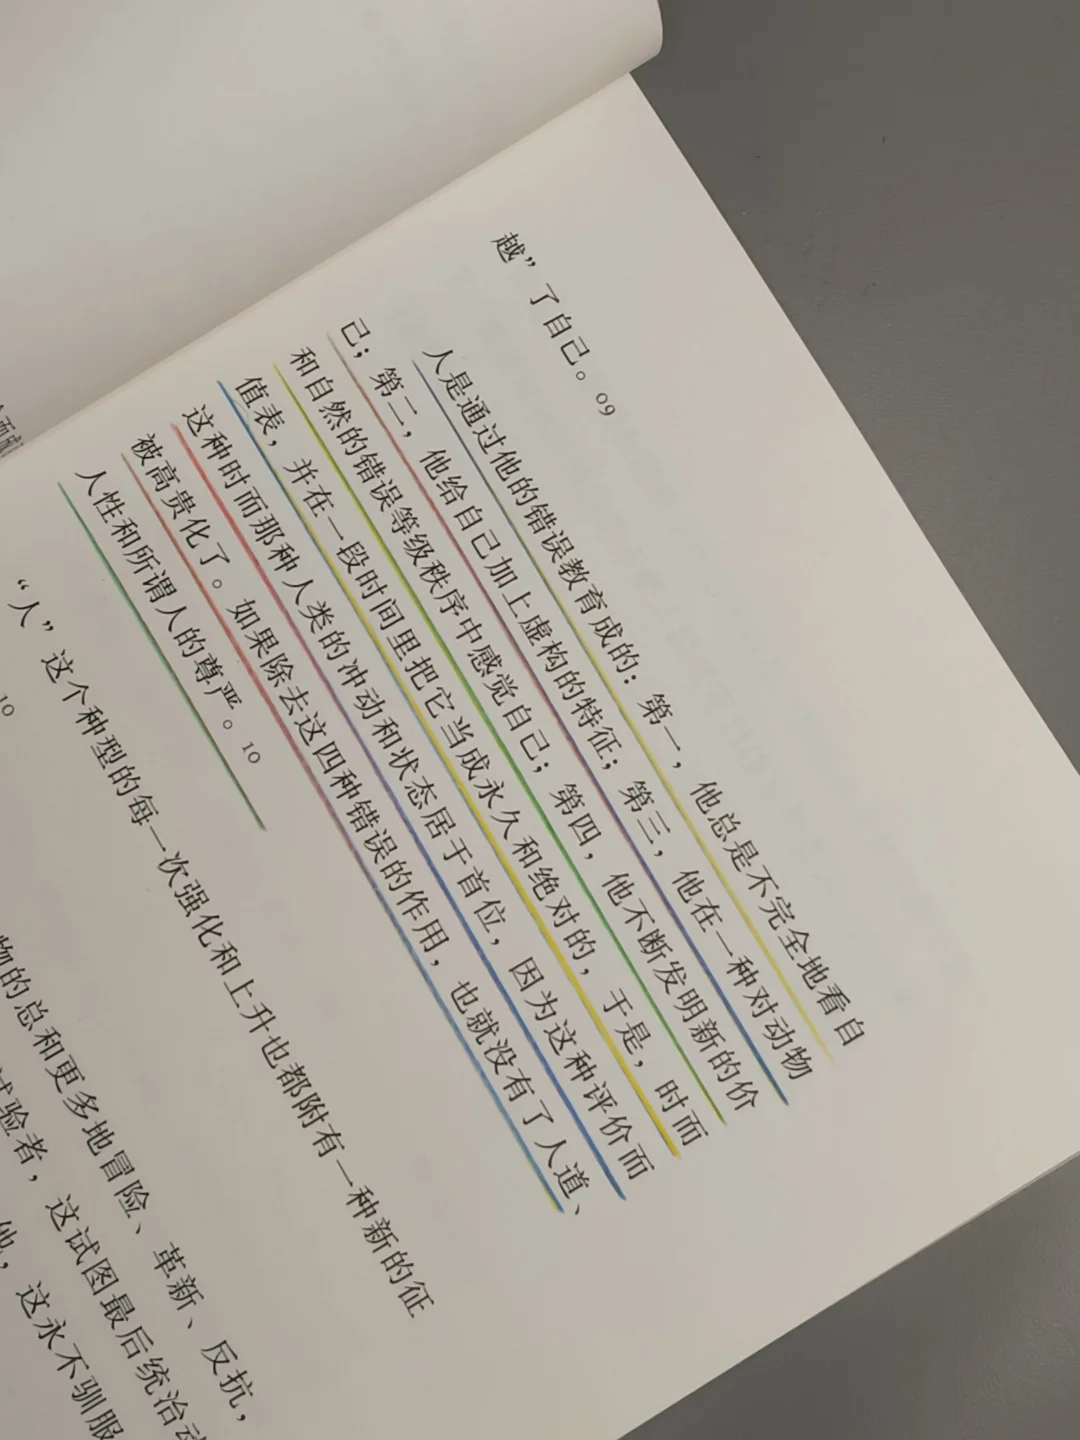 越”了自己。09
人是通过他的错误教育成的：第一，他总是不完全地看自
己；第二，他给自己加上虚构的特征；第三，他在一种对动物
和自然的错误等级秩序中感觉自己；第四，他不断发明新的价
值表，并在一段时间里把它当成永久和绝对的，于是，时而
这种时而那种人类的冲动和状态居于首位，因为这种评价而
被高贵化了。如果除去这四种错误的作用，也就没有了人道、
人性和所谓人的尊严。10
“人”这个种型的每一次强化和上升也都附有一种新的征
10
物的总和更多地冒险、革新、反抗，
试验者，这试图最后统治动
他，这永不驯服